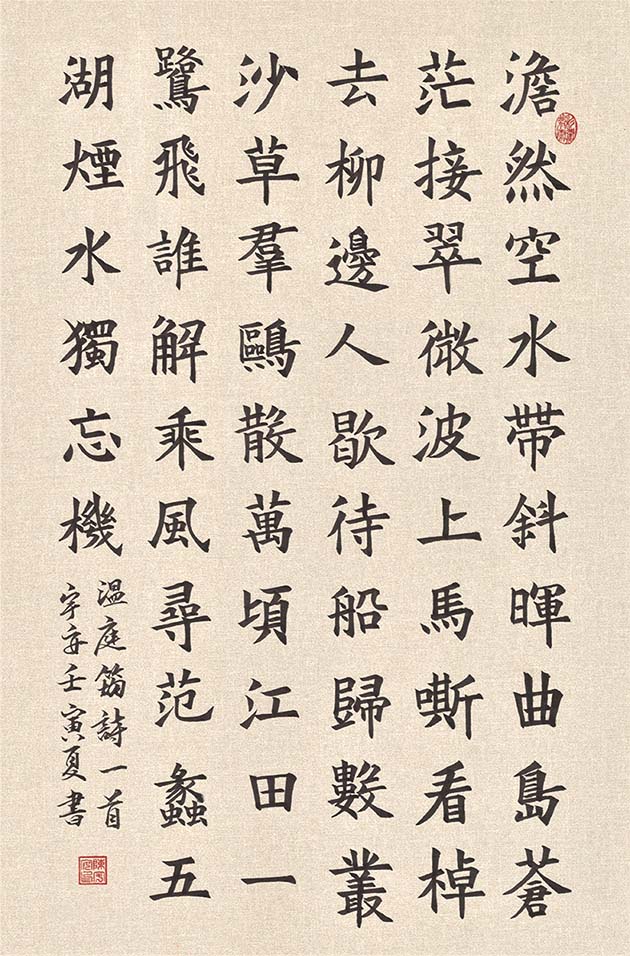 澹然空水帶斜暉曲島蒼
茫接翠微波上馬嘶看棹
去柳邊人歇待船歸數叢
沙草羣鷗散萬頃江田一
鷺飛誰解乘風尋范蠡五
湖煙水獨忘機
温庭筠詩一首
宇壬寅夏書